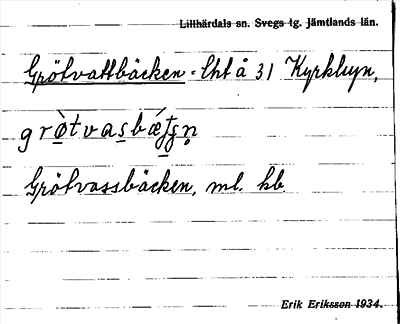 Lillhärdals sn. Svegs tg. Jämtlands län.
Grötvattbäcken - Lht å 31 Kyrkbyn,
grø̀tvasbǽʃʃn̥
Grötvassbäcken, ml. kb.
Erik Eriksson 1934.